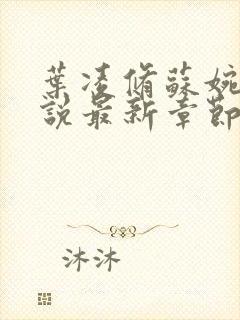 葉凌脩蘇婉
說最新章節
沐沐